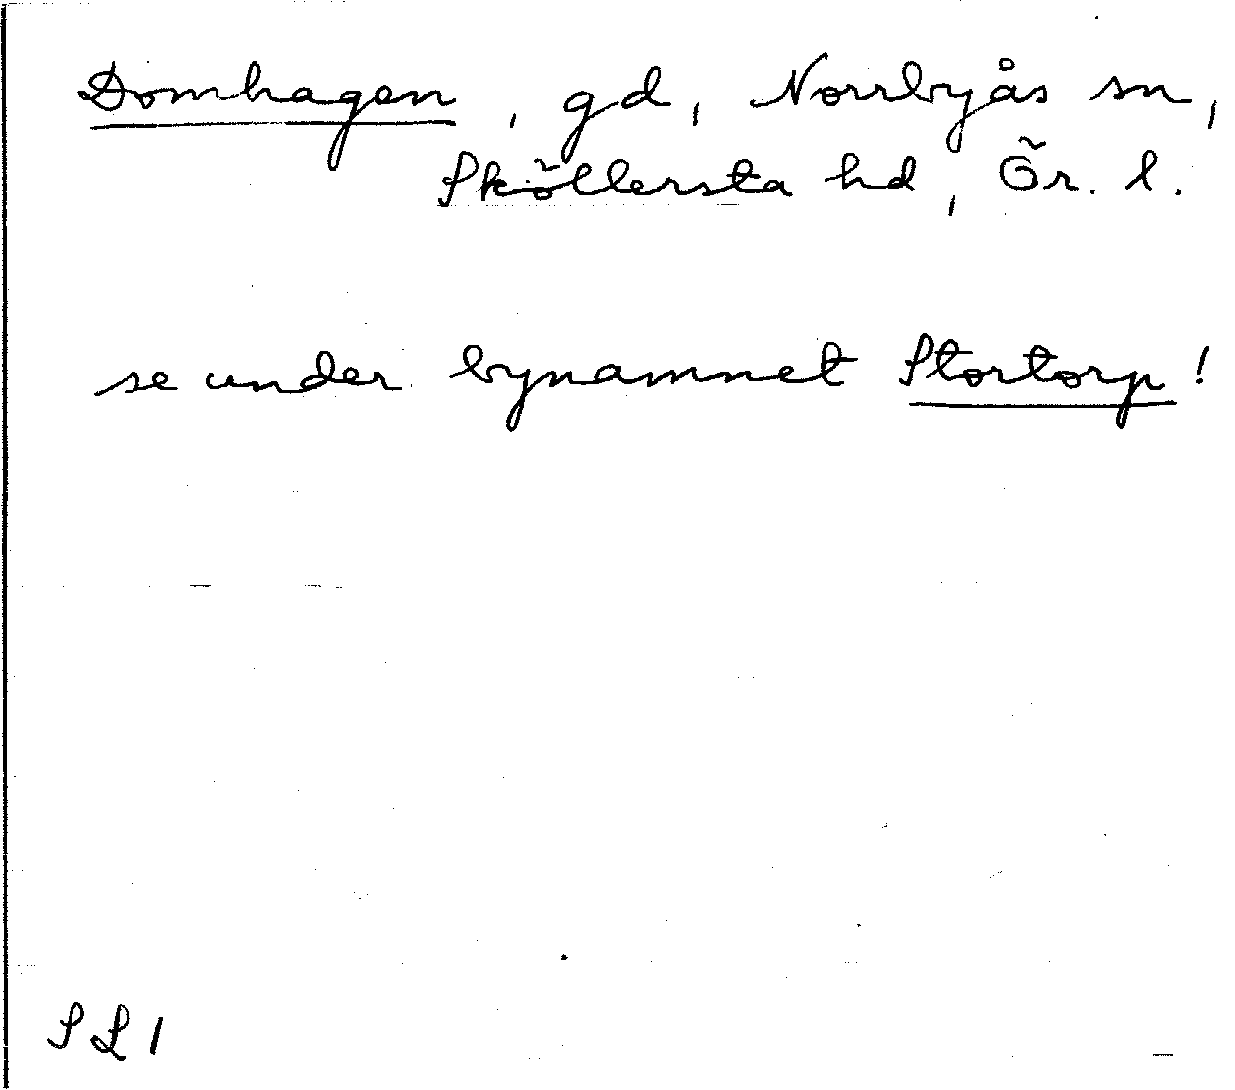 Domhagen, gd, Norrbyås sn,
Sköllersta hd, Ör. l.
se under bynamnet Stortorp!
SL1